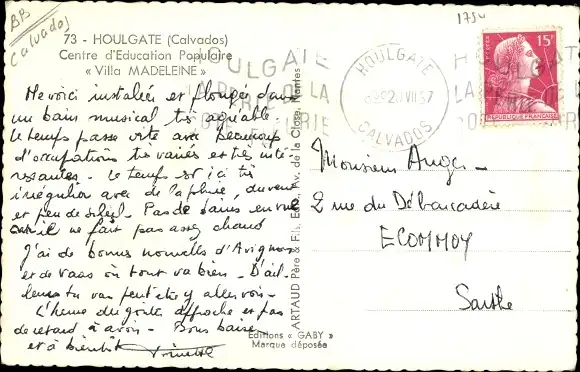 BB
Calvados
1734
73 - HOULGATE (Calvados)
Centre d'Education Populaire
« Villa MADELEINE »
Me voici installée et plongée dans
un bain musical très agréable.
Le temps passe vite avec beaucoup
d'occupations très variées et très inté-
ressantes. Le temps est ici très
irrégulier avec de la pluie, du vent
et peu de soleil. Pas de bains en vue
car il ne fait pas assez chaud
J'ai de bonnes nouvelles d'Avignon
et de Vaas où tout va bien. D'ail-
leurs tu vas peut-être y aller voir.
L'heure du goûter approche et pas
de retard à avoir. Bons baisers
et à bientôt
ARTAUD Père & Fils, Edit., Av. de la Close, Nantes
Editions « GABY »
Marque déposée
HOULGATE
20 VII 57
CALVADOS
HOULGATE
15F
POSTES
REPUBLIQUE FRANÇAISE
Monsieur Auger
2 rue du Débarcadère
ECOMMOY
Sarthe